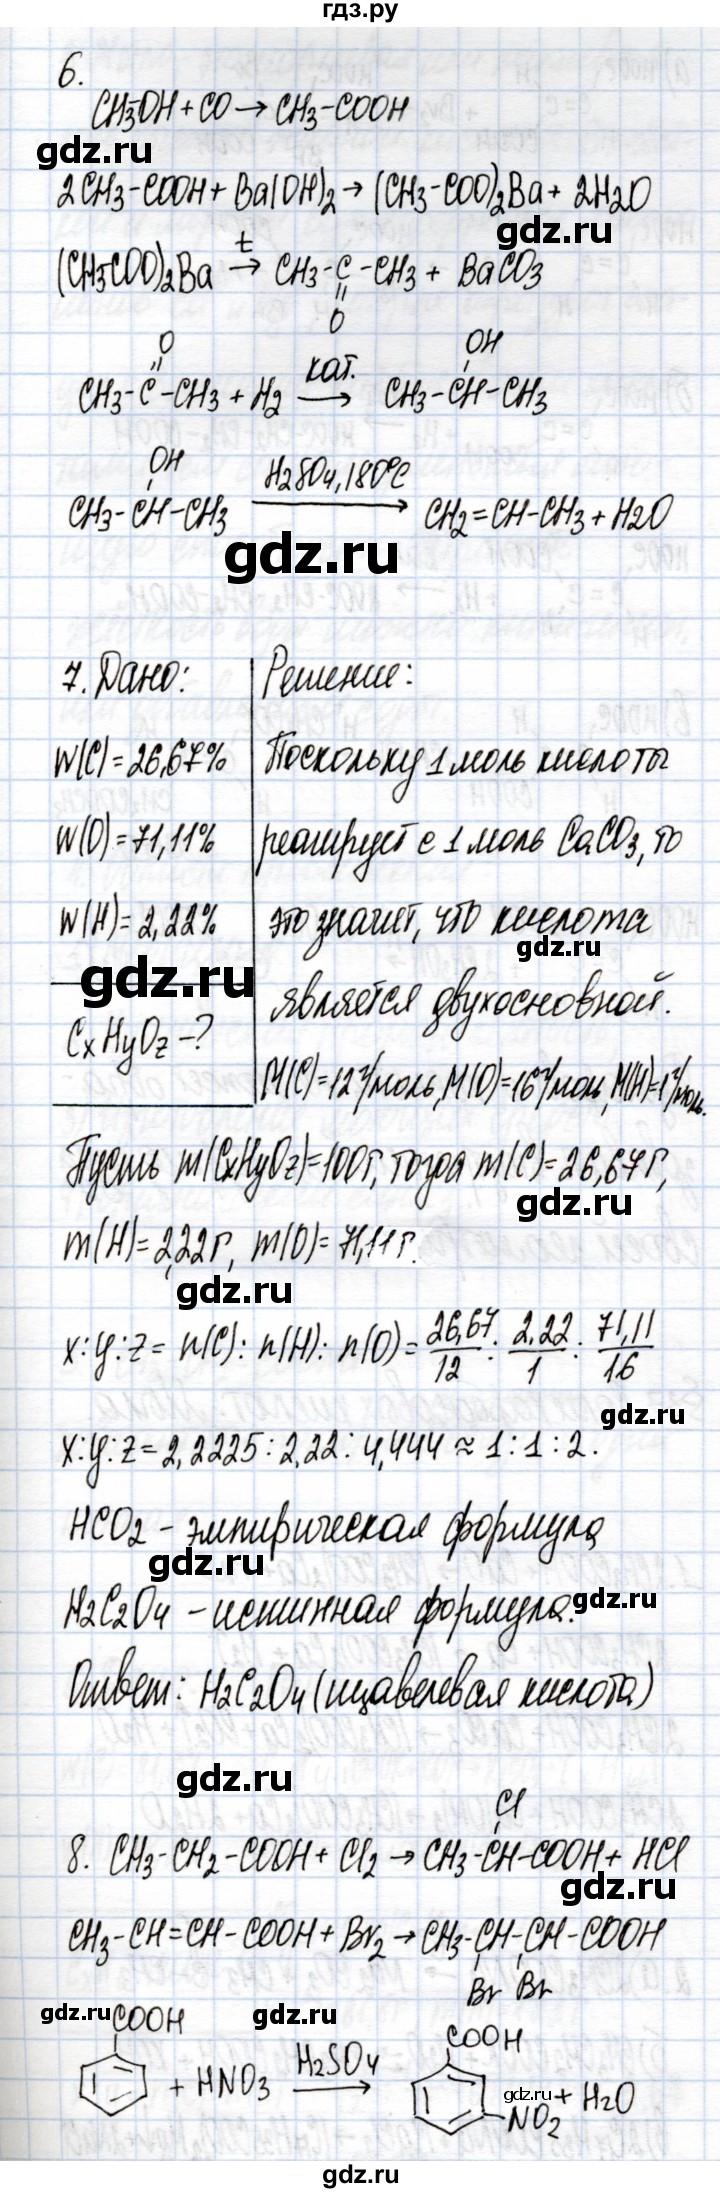 гдз.ру
6.
CH3OH + CO → CH3-COOH
gdz.ru
2CH3-COOH + Ba(OH)2 → (CH3-COO)2Ba + 2H2O
gdz.ru
t
(CH3COO)2Ba → CH3-C-CH3 + BaCO3
O
O OH
CH3-C-CH3 + H2 кат. → CH3-CH-CH3
OH
CH3-CH-CH3 H2SO4, 180°C → CH2=CH-CH3 + H2O
gdz.ru
7. Дано:
W(C) = 26,67%
W(O) = 71,11%
W(H) = 2,22%
gdz.ru
CxHyOz - ?
Решение:
Поскольку 1 моль кислоты
реагирует с 1 моль CaCO3, то
это значит, что кислота
gdz.ru
является двухосновной.
M(C) = 12 г/моль, M(O) = 16 г/моль, M(H) = 1 г/моль.
Пусть m(CxHyOz) = 100 г, тогда m(C) = 26,67 г,
gdz.ru
m(H) = 2,22 г, m(O) = 71,11 г.
gdz.ru
x : y : z = n(C) : n(H) : n(O) = 26,67/12 : 2,22/1 : 71,11/16
gdz.ru
x : y : z = 2,2225 : 2,22 : 4,444 ≈ 1 : 1 : 2.
HCO2 - эмпирическая формула
gdz.ru
gdz.ru
H2C2O4 - истинная формула.
Ответ: H2C2O4 (щавелевая кислота)
gdz.ru
Cl
8. CH3-CH2-COOH + Cl2 → CH3-CH-COOH + HCl
gdz.ru
CH3-CH=CH-COOH + Br2 → CH3-CH-CH-COOH
Br Br
gdz.ru
gdz.ru
COOH COOH
+ HNO3 H2SO4 → NO2 + H2O
gdz.ru
gdz.ru